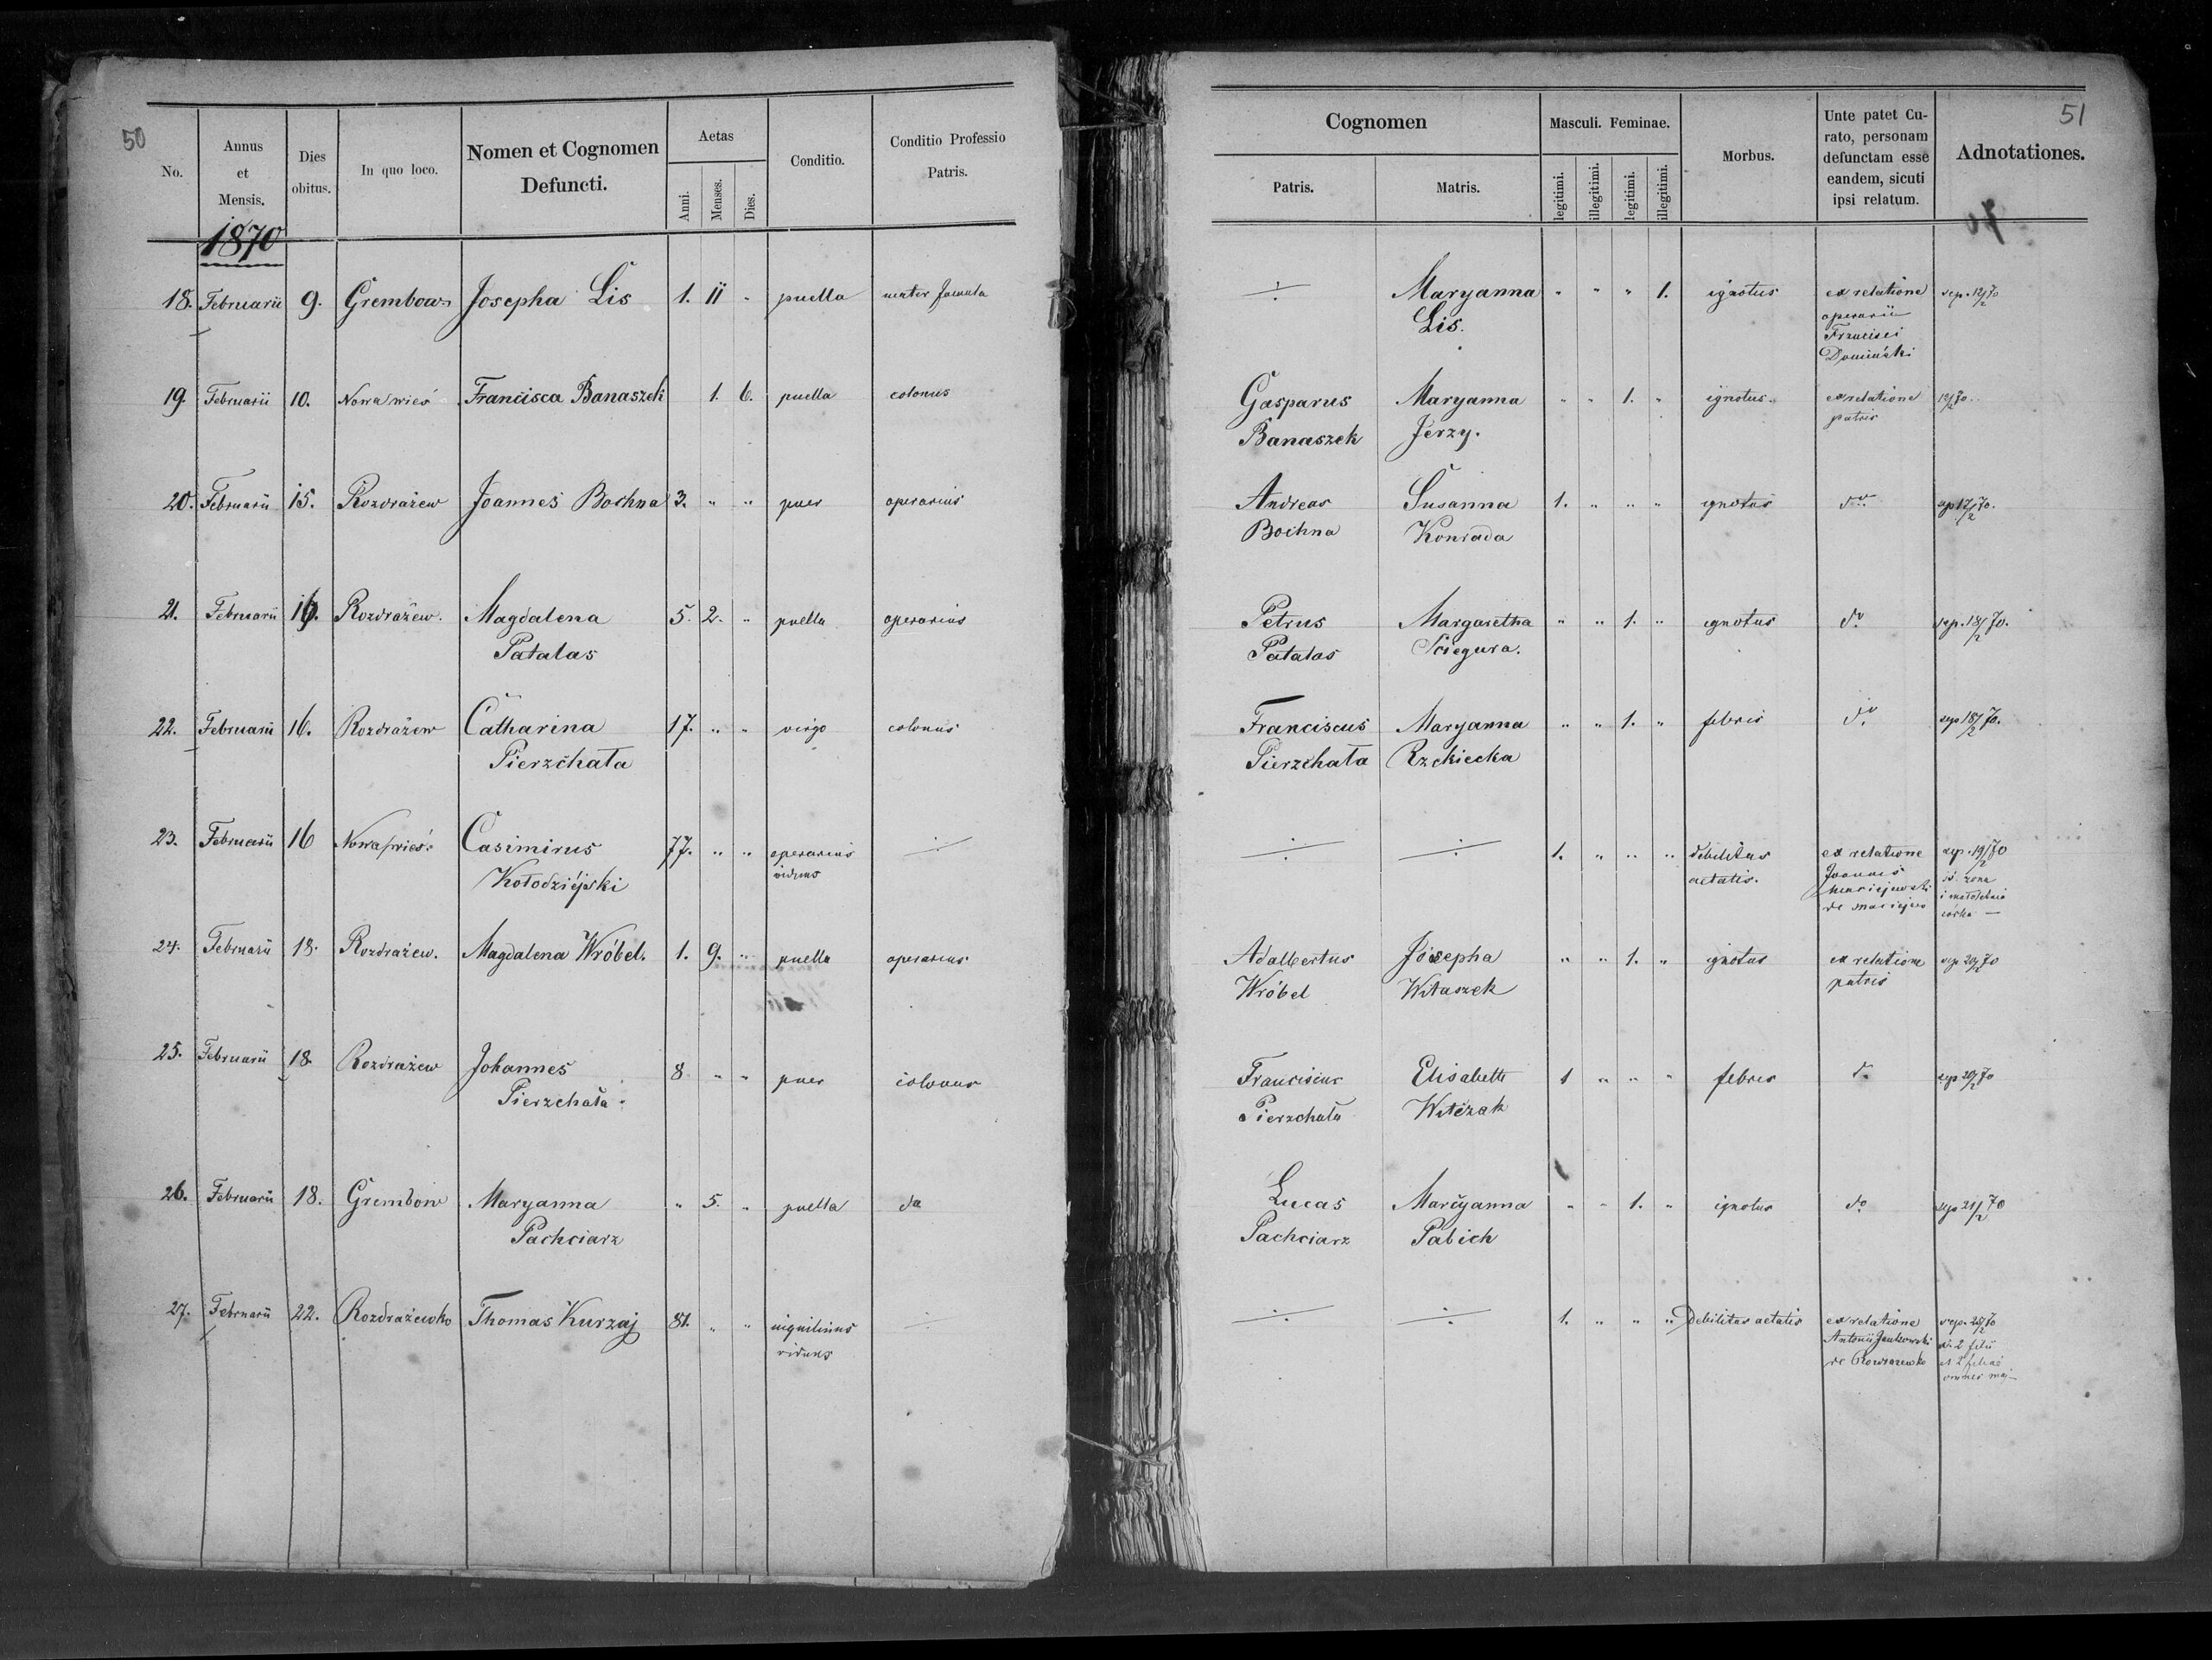 50
No. Annus et Mensis. Dies obitus. In quo loco. Nomen et Cognomen Defuncti. Aetas Anni. Menses. Dies. Conditio. Conditio Professio Patris.
Cognomen Patris. Matris. Masculi. Feminae. legitimi. illegitimi. legitimi. illegitimi. Morbus. Unte patet Curato, personam defunctam esse eandem, sicuti ipsi relatum. Adnotationes.
51
1870
18. Februarii 9. Grembow Josepha Lis 1. 11 " puella mater famula
÷ Maryanna " " " 1. ignotus ex relatione sep. 12/2 70
Lis. operarii
Francisci
Domiński
19. Februarii 10. Nowawieś Francisca Banaszek 1. 6. puella colonus
Gasparus Maryanna " " 1. " ignotus. ex relatione 12/2 70.
Banaszek Jerzy. patris
20. Februarii 15. Rozdrażew Joannes Bochna 3. " " puer operarius
Andreas Susanna 1. " " " ignotus do sep 17/2 70.
Bochna Konrada
21. Februarii Rozdrażew. Magdalena 5. 2. " puella operarius
Patalas
Petrus Margaretha " " 1. " ignotus do sep. 18/2 70.
Patalas Ściegura.
22. Februarii 16. Rozdrażew Catharina 17. " " virgo colonus
Pierzchała
Franciscus Maryanna " " 1. " febris do sep 18/2 70.
Pierzchała Rzekiecka
23. Februarii 16 Nowawieś Casimirus 77. " " operarius ÷
Kołodziéjski viduus
÷ ÷ 1. " " " debilitas ex relatione sep. 19/2 70
aetatis. Joannes żona
de Maciejew córka —
24. Februarii 18. Rozdrażew. Magdalena Wróbel. 1. 9. " puella operarius
Adalbertus Józepha " " 1. " ignotus ex relatione sep 20/2 70
Wróbel Witaszek patris
25. Februarii 18. Rozdrażew Johannes 8 " " puer colonus
Pierzchała.
Franciscus Elisabeth 1 " " " febris do sep 20/2 70
Pierzchała Witczak
26. Februarii 18. Grembow Maryanna " 5. " puella do
Pachciarz
Lucas Maryanna " " 1. " ignotus do sep 21/2 70
Pachciarz Pabich
27. Februarii 22. Rozdrażewko Thomas Kurzaj 81. " " inquilinus ÷
viduus
÷ ÷ 1. " " " Debilitas aetatis ex relatione sep. 25/2 70
Antonii Jankowski 2 filii
de Rozdrazewko et 2 filiae
omnes maj—